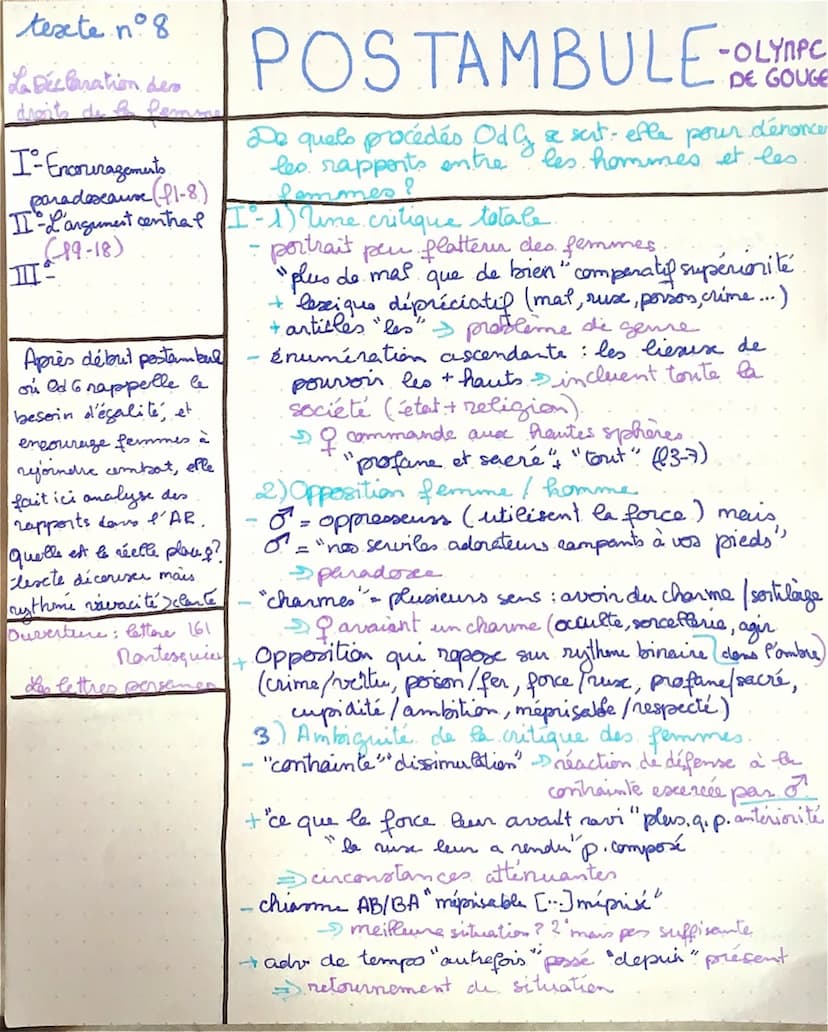 texte n° 8
La Déclaration des
droits de la femme
I°- Encouragements
paradoxaux (l1-8)
II°- L'argument central
(l9-18)
III°-
Après début postambule
où OdG rappelle le
besoin d'égalité, et
encourage femmes à
rejoindre combat, elle
fait ici analyse des
rapports dans l'AR.
Quelle est la réelle place ♀?
texte décousu mais
rythmé vivacité > clarté
Ouverture : lettre 161
Montesquieu
Les lettres persanes
POSTAMBULE - OLYMPE
DE GOUGE
De quels procédés OdG se sert-elle pour dénoncer
les rapports entre les hommes et les
femmes ?
I°- 1) Une critique totale
- portrait peu flatteur des femmes
"plus de mal que de bien" comparatif supériorité
+ lexique dépréciatif (mal, ruse, poison, crime ...)
+ articles "les" → problème de genre
- énumération ascendante : les lieux de
pouvoir les + hauts → incluent toute la
société (état + religion)
→ ♀ commande aux hautes sphères
"profane et sacré" + "tout" (l3-7)
2) Opposition femme / homme
- ♂ = oppresseurs (utilisent la force) mais
♂ = "nos serviles adorateurs rampants à vos pieds"
→ paradoxe
- "charmes" = plusieurs sens : avoir du charme / sortilège
→ ♀ avaient un charme (occulte, sorcellerie, agir
dans l'ombre)
+ Opposition qui repose sur rythme binaire
(crime/vertu, poison/fer, force/ruse, profane/sacré,
cupidité / ambition, méprisable / respecté)
3) Ambiguïté de la critique des femmes
- "contrainte" "dissimulation" → réaction de défense à la
contrainte exercée par ♂
+ "ce que la force leur avait ravi" plus. q. p. antériorité
"la ruse leur a rendu" p. composé
⇒ circonstances atténuantes
- chiasme AB/BA "méprisable [...] méprisé"
→ meilleure situation ? mais pas suffisante
→ adv de temps "autrefois" passé "depuis" présent
⇒ retournement de situation